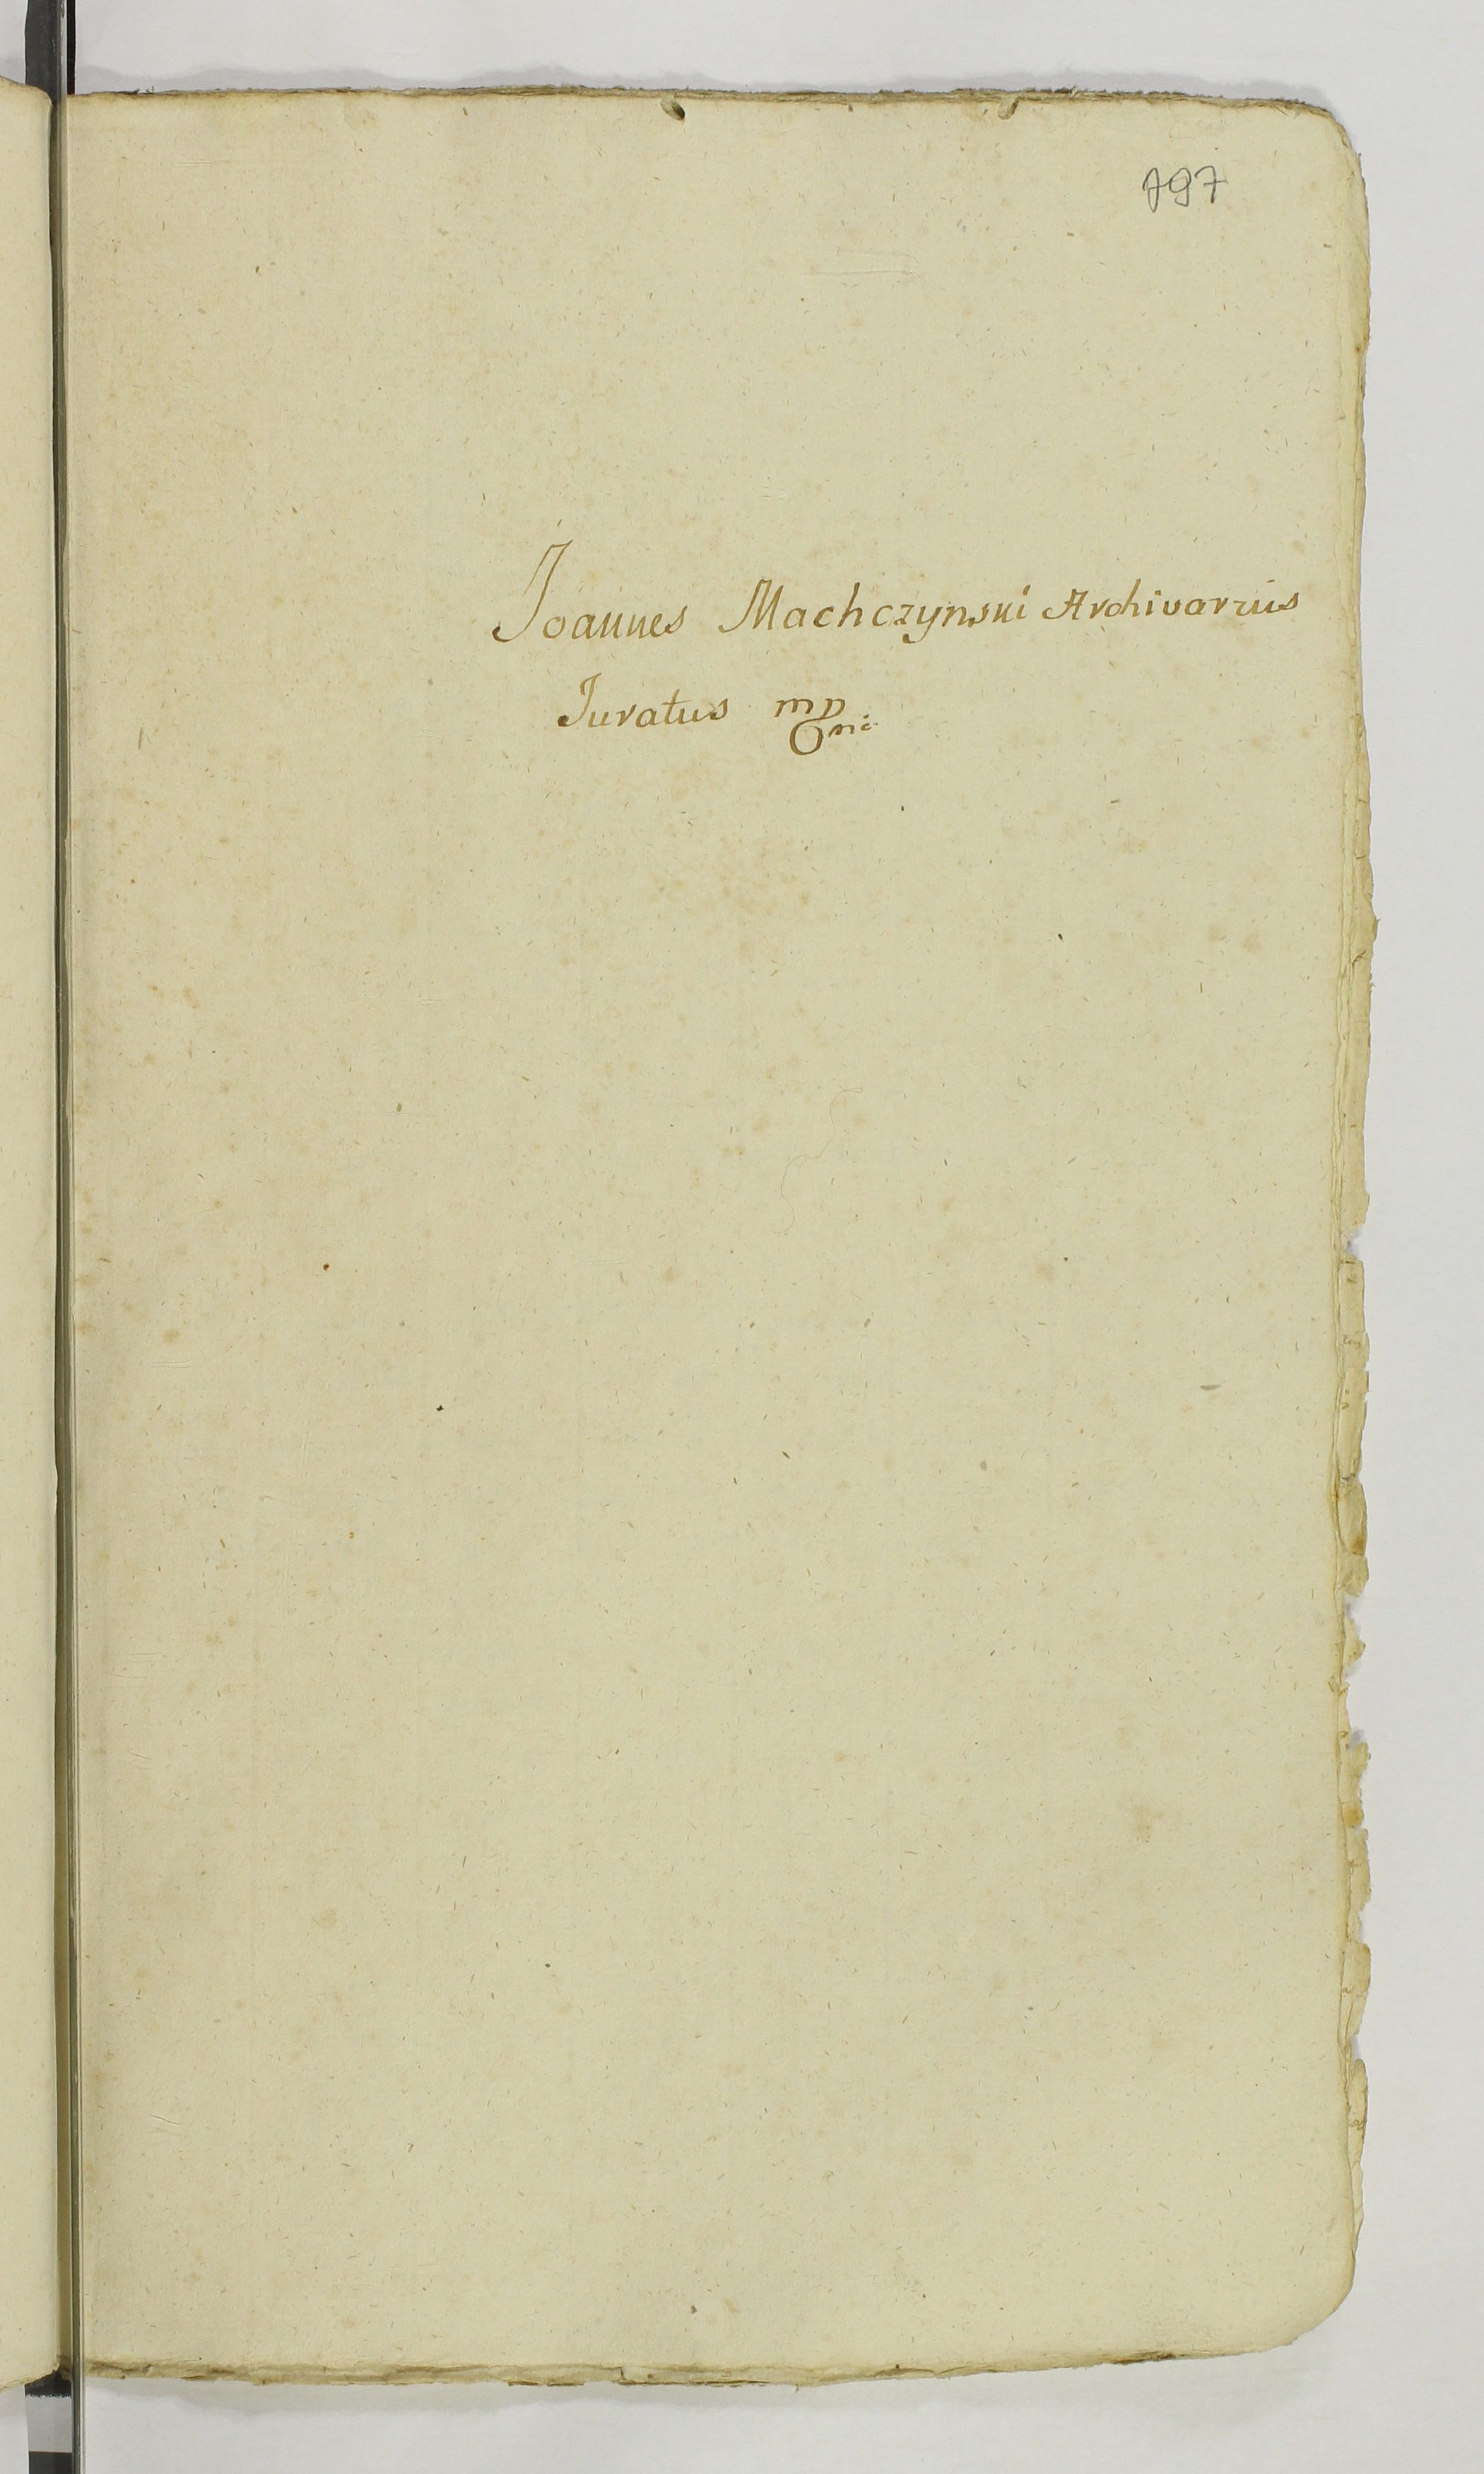 797
Joannes Machczynski Archivarius
Juratus mp